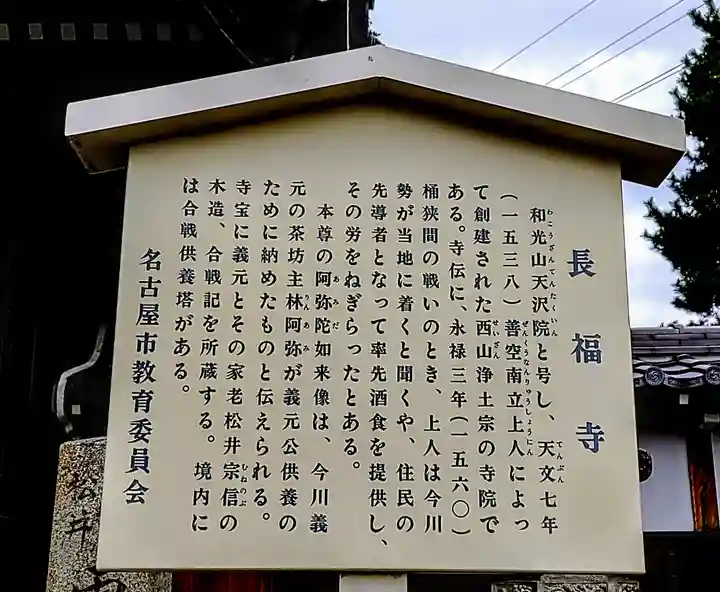 長福寺
和光山天沢院と号し、天文七年
わこうざんてんたくいん
てんぶん
(一五三八)善空南立上人によっ
ぜんくうなんりゅうしょうにん
て創建された西山浄土宗の寺院で
せいざん
ある。寺伝に、永禄三年(一五六〇)
桶狭間の戦いのとき、上人は今川
勢が当地に着くと聞くや、住民の
先導者となって率先酒食を提供し、
その労をねぎらったとある。
本尊の阿弥陀如来像は、今川義
あみだ
元の茶坊主林阿弥が義元公供養の
りんあみ
ために納めたものと伝えられる。
寺宝に義元とその家老松井宗信の
むねのぶ
木造、合戦記を所蔵する。境内に
は合戦供養塔がある。
名古屋市教育委員会
松井